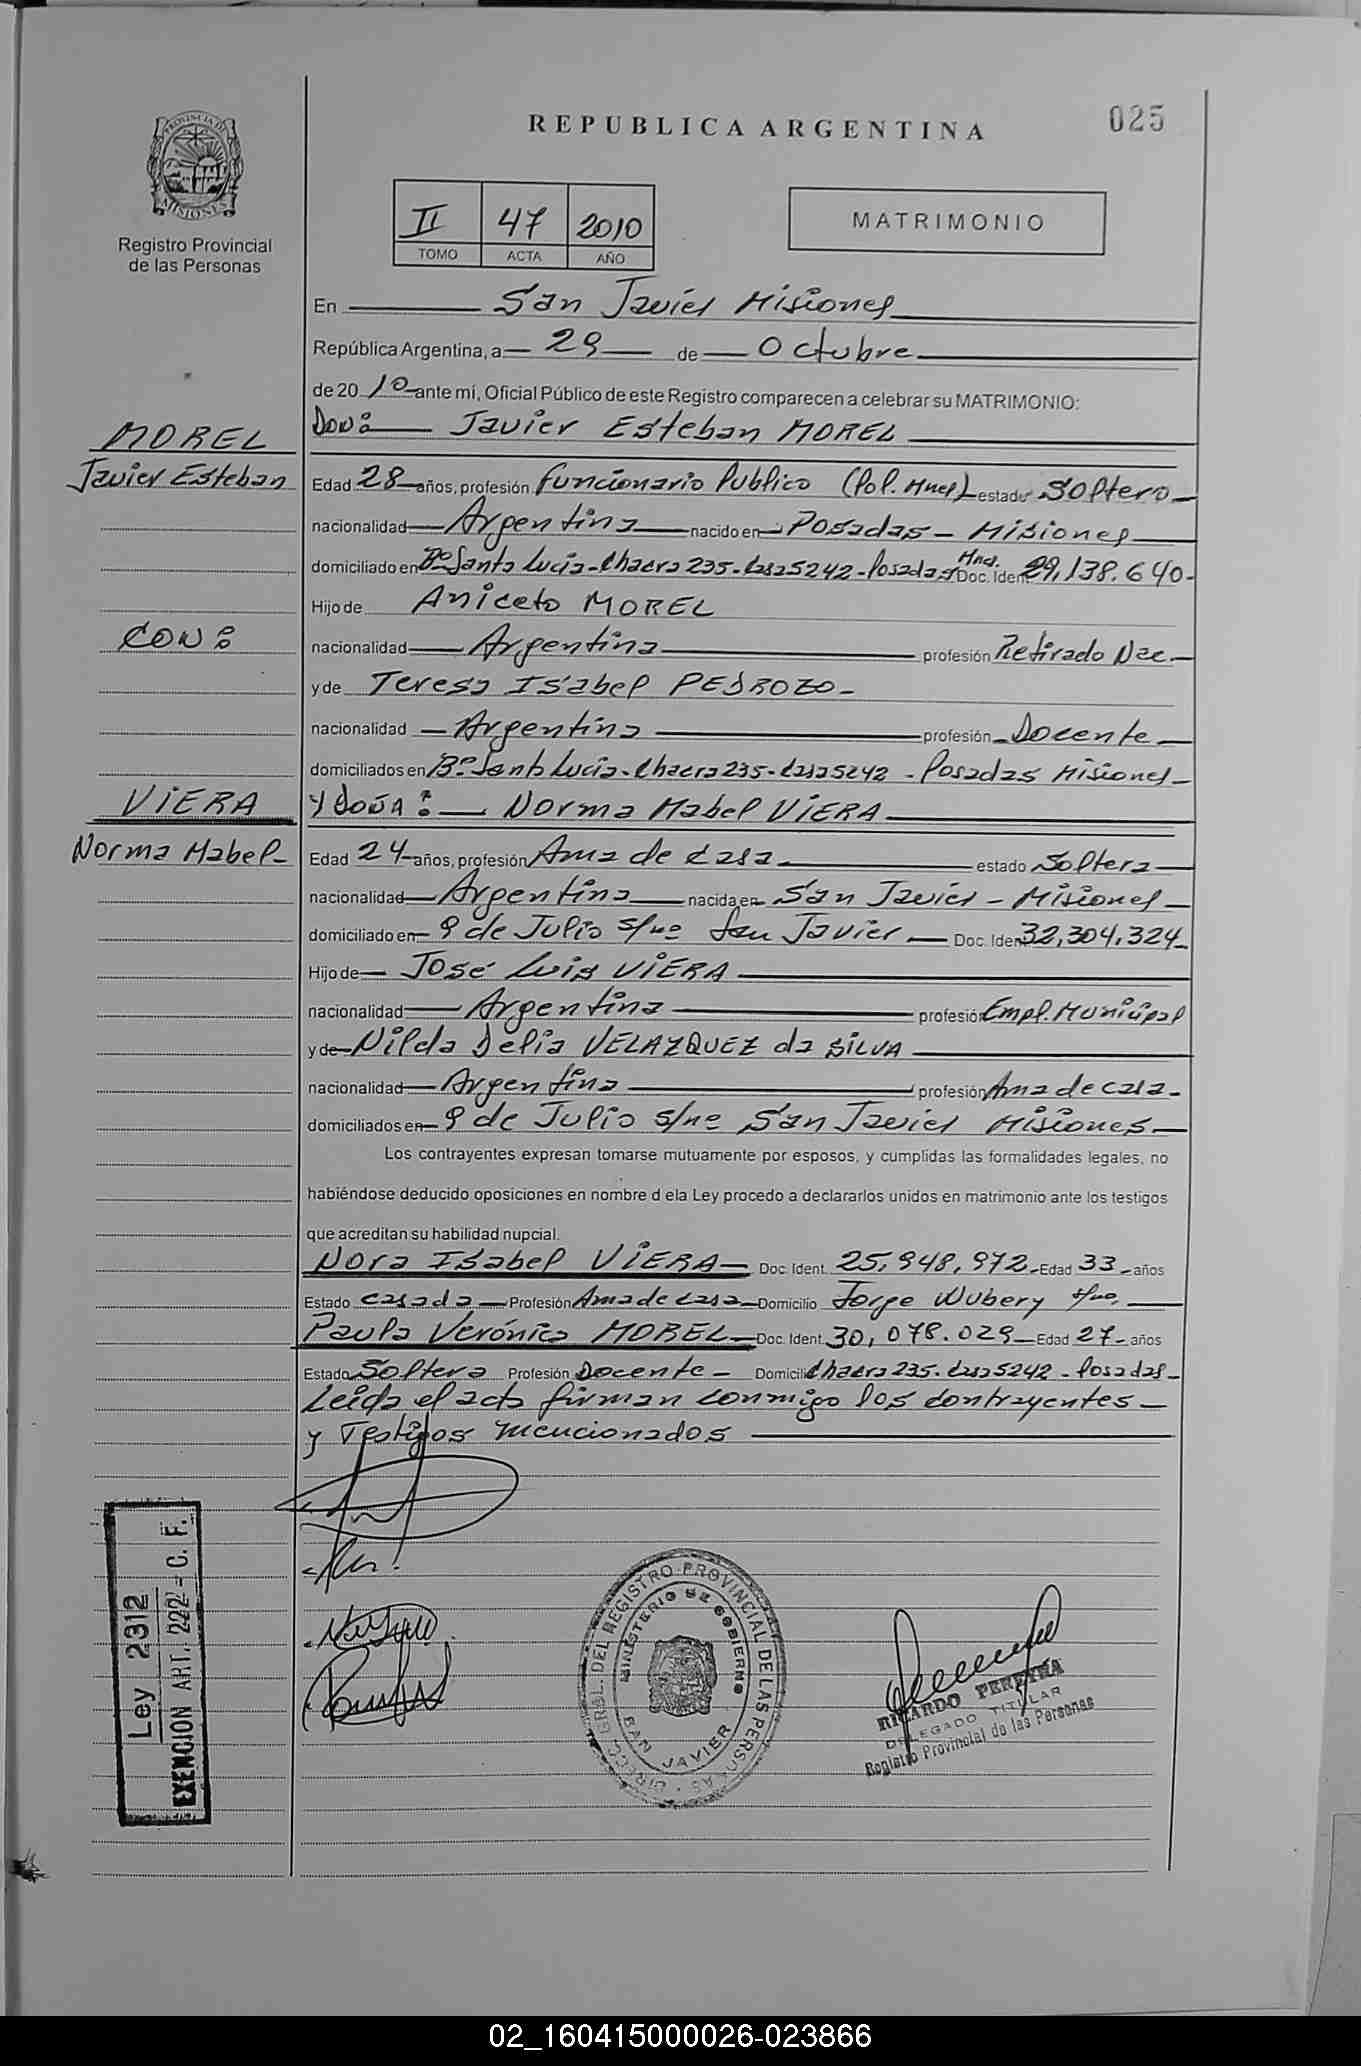 REPUBLICA ARGENTINA
025
PROVINCIA DE
MISIONES
Registro Provincial
de las Personas
II 47 2010
TOMO ACTA AÑO
MATRIMONIO
En San Javier Misiones
República Argentina, a 29 de Octubre
de 20 10 ante mí, Oficial Público de este Registro comparecen a celebrar su MATRIMONIO:
MOREL
Don: Javier Esteban MOREL
Javier Esteban
Edad 28 años, profesión funcionario Publico (Pol. Mnes) estado Soltero
nacionalidad Argentina nacido en Posadas - Misiones
domiciliado en Bº Santa Lucia - Chacra 235 - Casa 5242 - Posadas Mnes. Doc. Ident. 29,138.640
Hijo de Aniceto MOREL
CON:
nacionalidad Argentina profesión Retirado Nac
y de Teresa Isabel PEDROZO
nacionalidad Argentina profesión Docente
domiciliados en Bº Santa Lucia - Chacra 235 - Casa 5242 - Posadas Misiones
VIERA
Y DOÑA: Norma Mabel VIERA
Norma Mabel
Edad 24 años, profesión Ama de Casa estado Soltera
nacionalidad Argentina nacida en San Javier - Misiones
domiciliado en 9 de Julio s/nº San Javier Doc. Ident. 32,304,324
Hijo de José Luis VIERA
nacionalidad Argentina profesión Empl. Municipal
y de Nilda Delia VELAZQUEZ da SILVA
nacionalidad Argentina profesión Ama de casa
domiciliados en 9 de Julio s/nº San Javier Misiones
Los contrayentes expresan tomarse mutuamente por esposos, y cumplidas las formalidades legales, no
habiéndose deducido oposiciones en nombre d ela Ley procedo a declararlos unidos en matrimonio ante los testigos
que acreditan su habilidad nupcial.
Nora Isabel VIERA Doc. Ident. 25,948,972 Edad 33 años
Estado Casada Profesión Ama de Casa Domicilio Jorge Wubery
Paula Verónica MOREL Doc. Ident. 30,078.029 Edad 27 años
Estado Soltera Profesión Docente Domicilio Chacra 235 - Casa 5242 - Posadas
Leida el acta firman conmigo los contrayentes
y Testigos mencionados
Ley 2312
EXENCION ART. 222 - C. F.
DIREC. GRAL. DEL REGISTRO PROVINCIAL DE LAS PERSONAS
MINISTERIO DE GOBIERNO
SAN JAVIER
RICARDO PEREYRA
DELEGADO TITULAR
Registro Provincial de las Personas
02_160415000026-023866